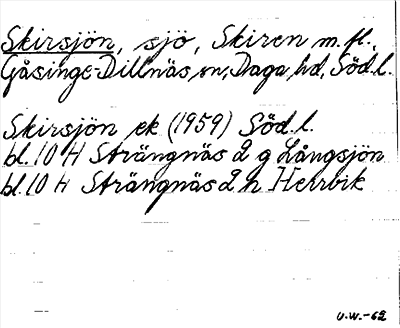 Skirsjön, sjö, Skiren m.fl.,
Gåsinge-Dillnäs sn, Daga hd, Söd.l.
Skirsjön ek (1959) Söd.l.
bl. 10 H Strängnäs 2 g Långsjön
bl. 10 H Strängnäs 2 h Herrvik
U.W.-62